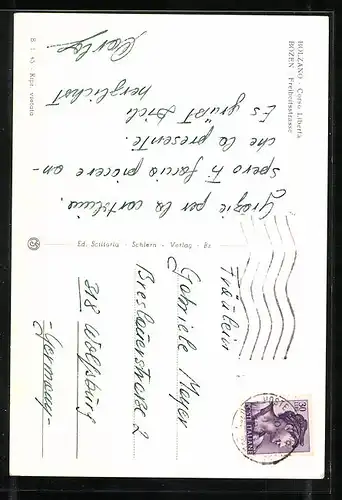 BOLZANO - Corso Libertà
BOZEN - Freiheitsstrasse
Grazie per la cartolina,
spero Ti faccia piacere an-
che la presente.
Es grüßt Dich
herzlichst
Carlo
B. 1. 45 - Ripr. vietata
Ed: Scittoria - Schlern - Verlag - Bz
Fräulein
Gabriele Meyer
Breslauerstraße 2
318 Wolfsburg
-Germany-
30
POSTE ITALIANE